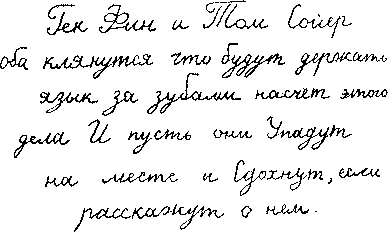 Гек Фин и Том Сойер
оба клянутся что будут держать
язык за зубами насчет этого
дела И пусть они Упадут
на месте и Сдохнут, если
расскажут о нем.